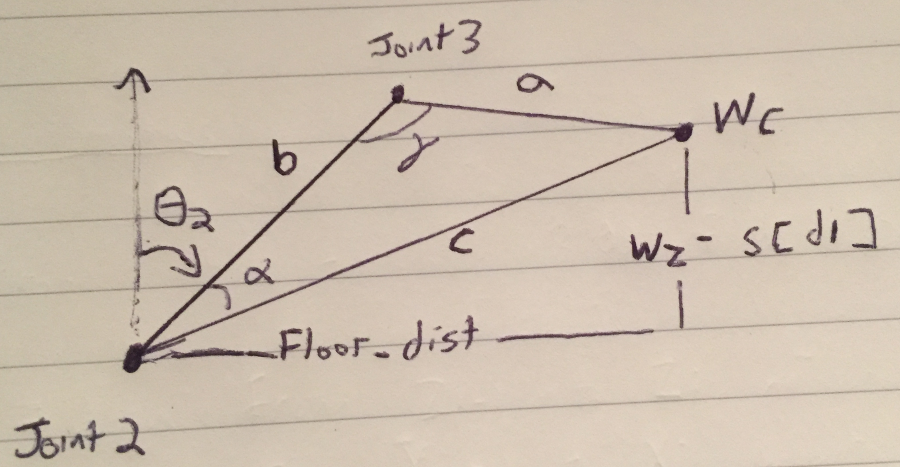 Joint 3
a
Wc
b
γ
θ2
c
Wz - s[d1]
α
Floor_dist
Joint 2